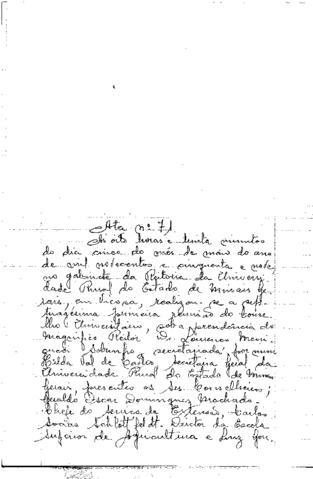 Ata nº 71
Às oito horas e trinta minutos
do dia cinco do mês de maio do ano
de mil novecentos e cinquenta e nove,
no gabinete da Reitoria da Universi
dade Rural do Estado de Minas Ge-
rais, em Viçosa, realizou-se a sep-
tuagésima primeira reunião do Conse
lho Universitário, sob a presidência do
Magnífico Reitor Dr. Lourenço Meni
cucci Sobrinho, secretariada por mim
Val de Castro, secretária geral da
Universidade Rural do Estado de Minas
Gerais, presentes os srs. Conselheiros,
Geraldo Oscar Domingues Machado-
Chefe do Serviço de Extensão, Carlos
Socias Schlottfeldt. Diretor da Escola
Superior de Agricultura e Luiz